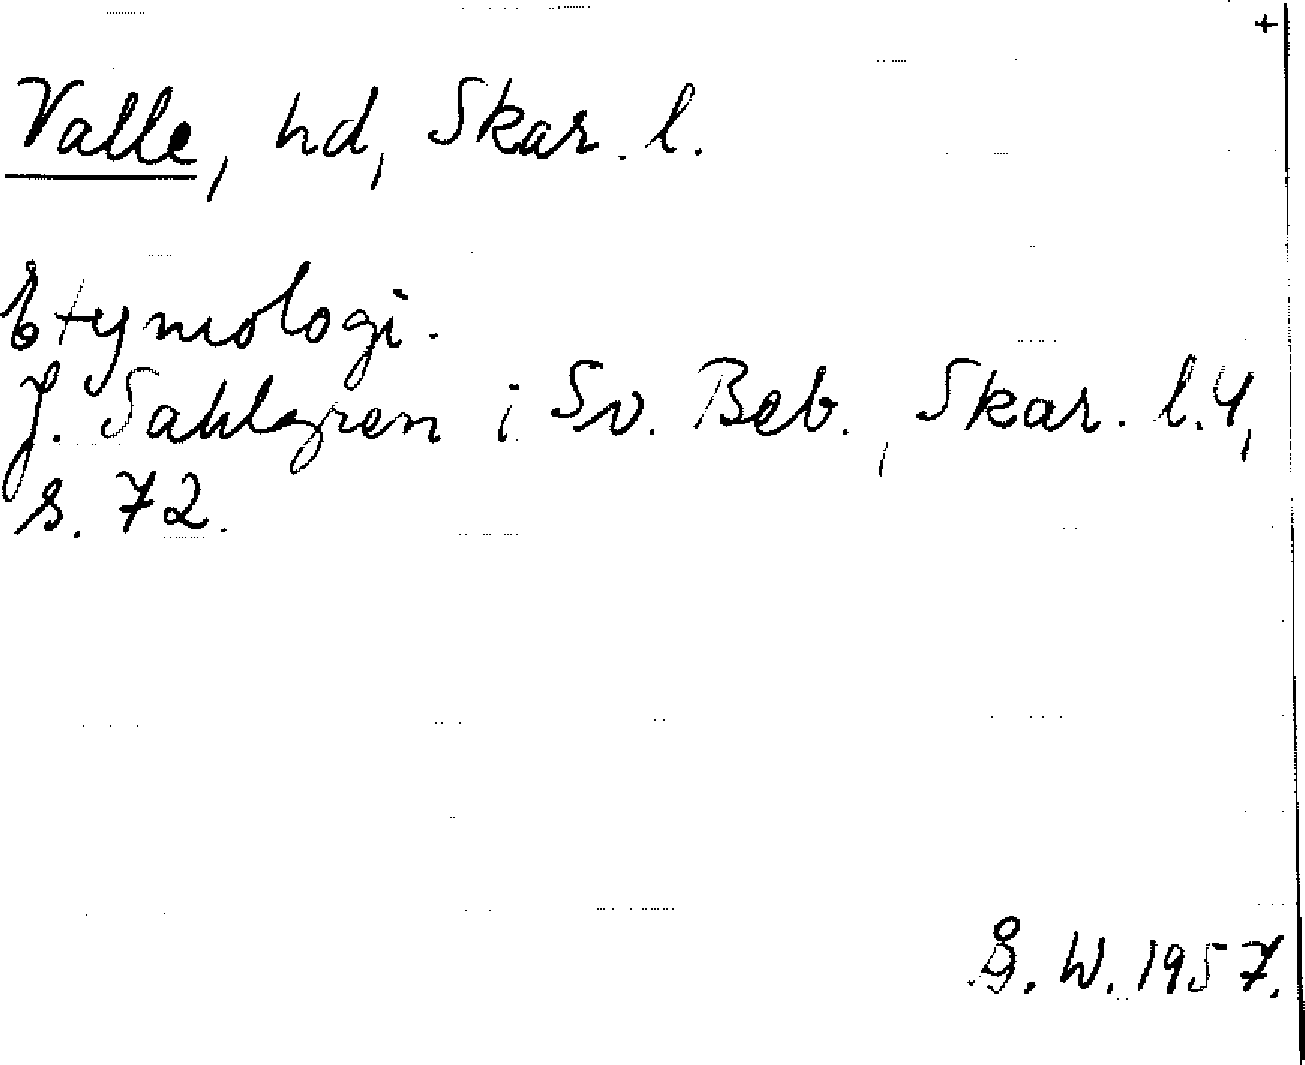 +
Valle, hd, Skar. l.
Etymologi.
J. Sahlgren i Sv. Beb., Skar. l. 4,
s. 72.
G. W. 1957.